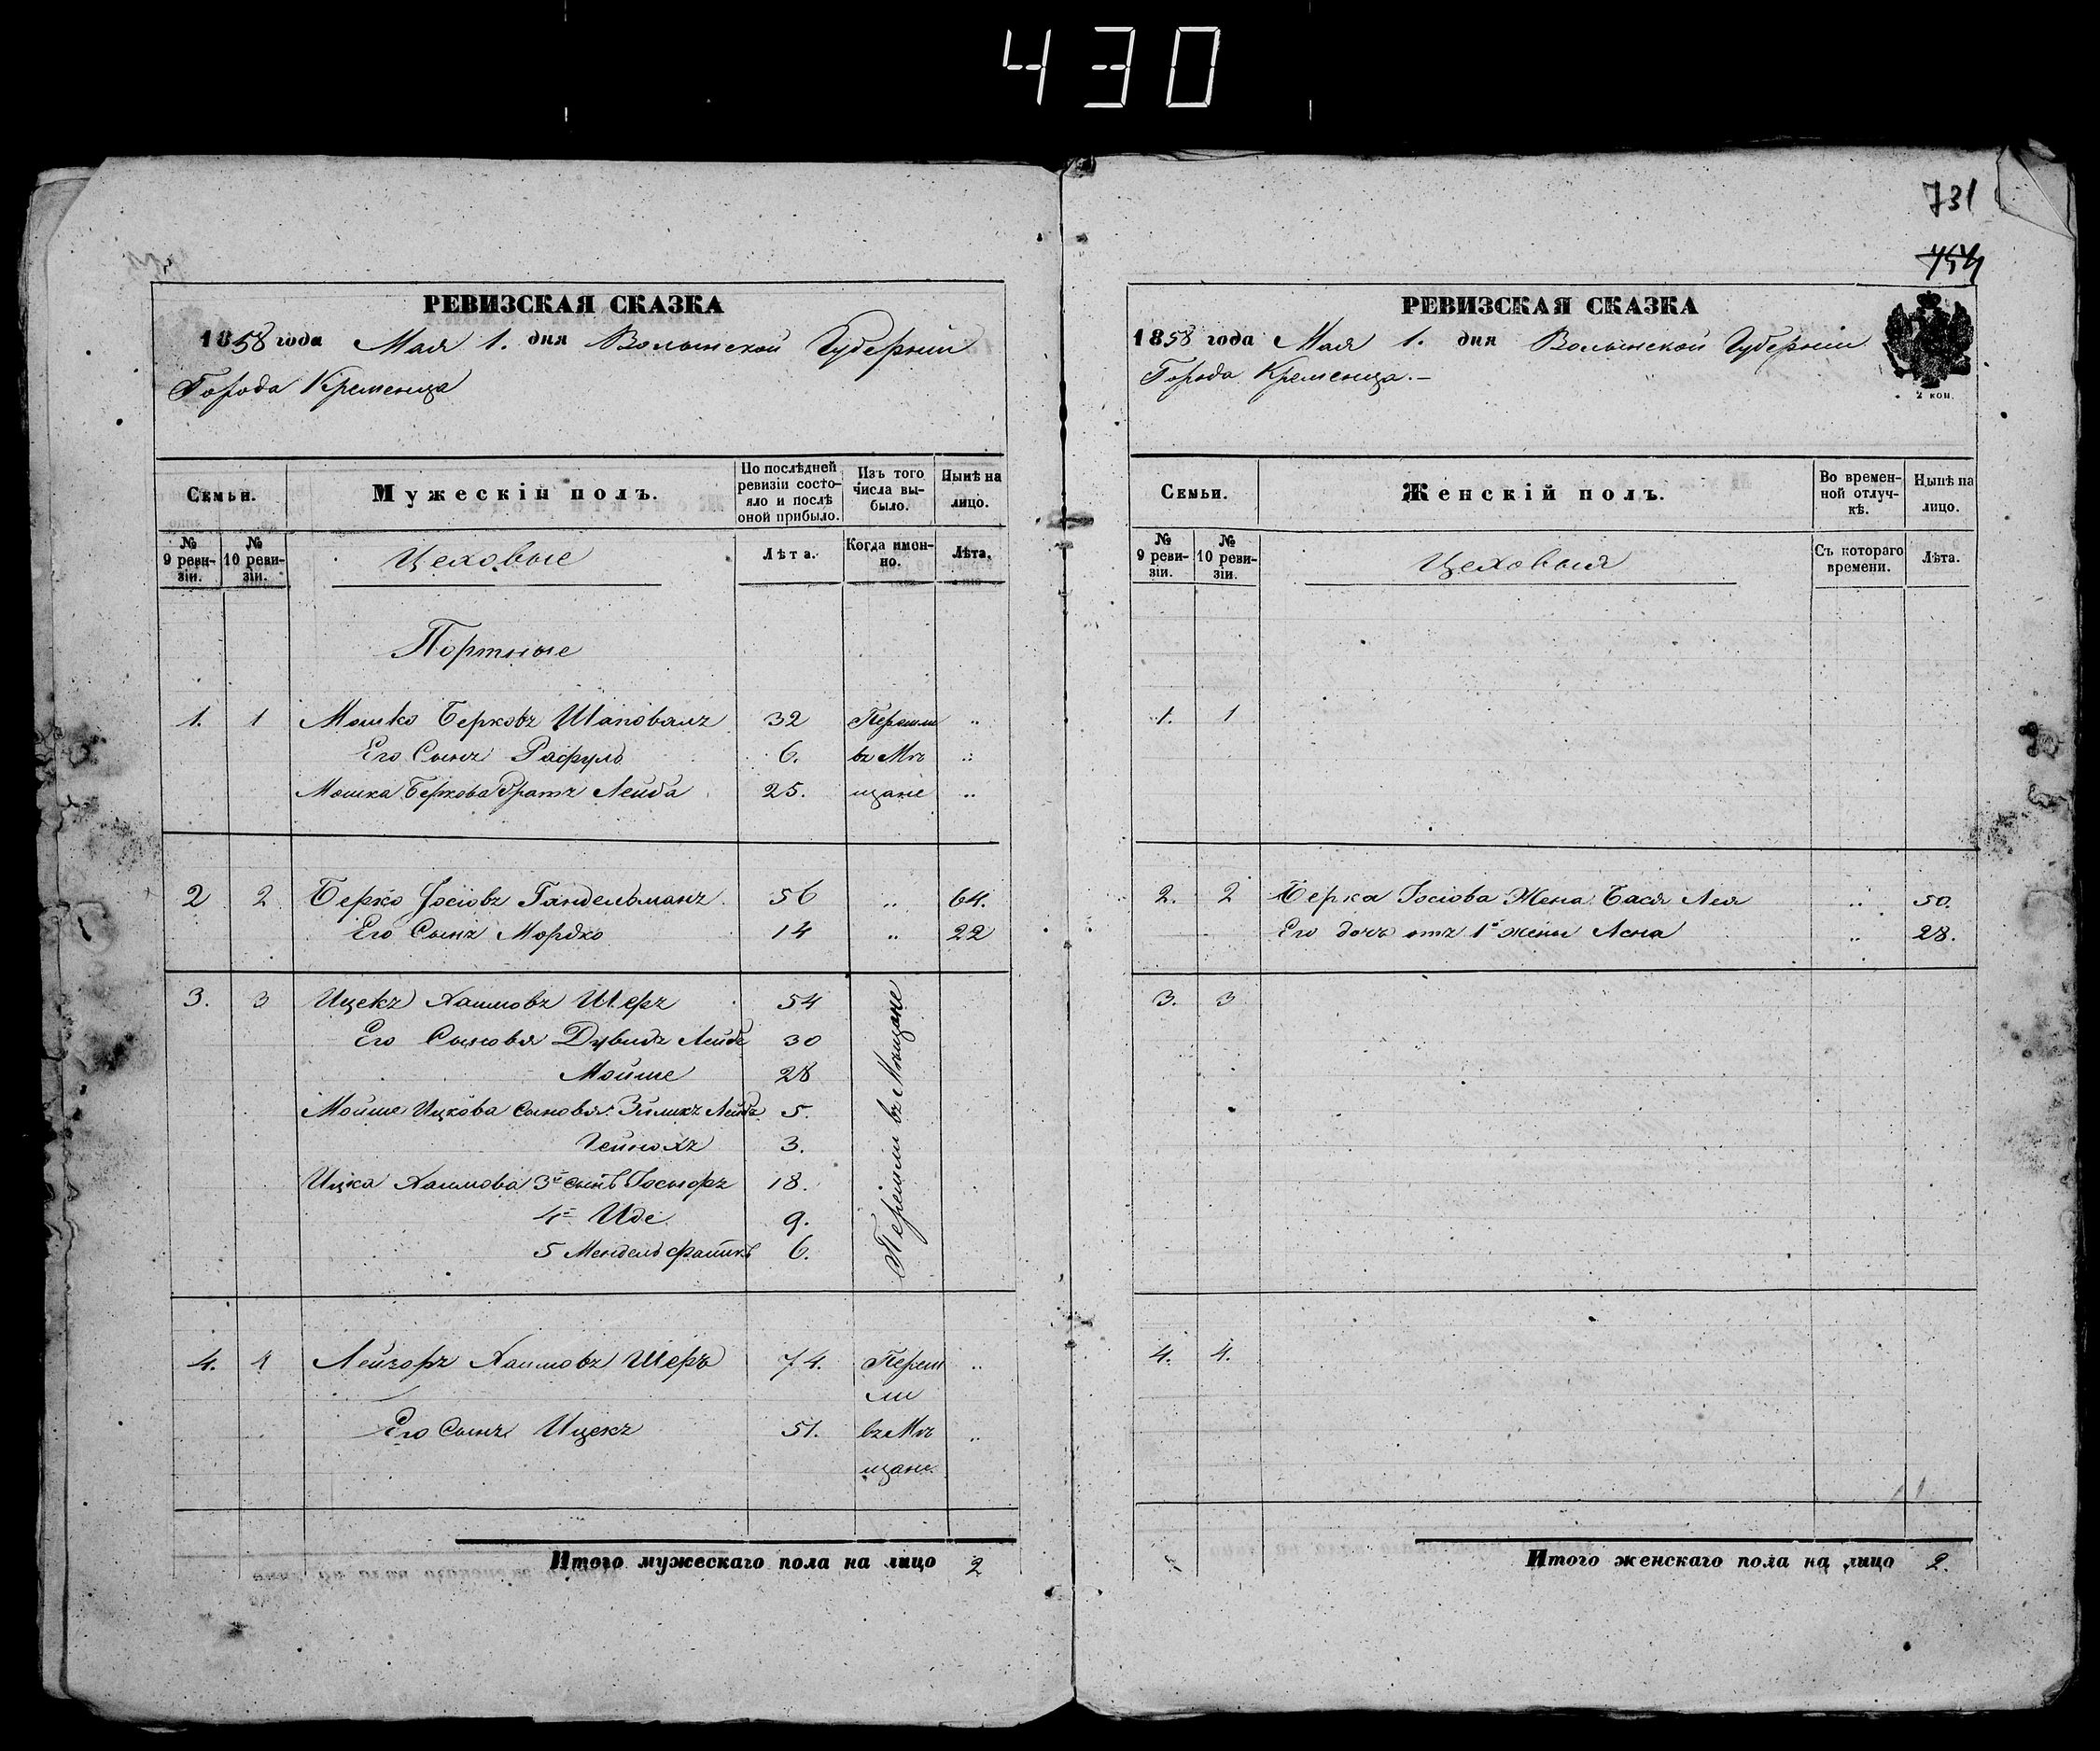 430
РЕВИЗСКАЯ СКАЗКА
1858 года Мая 1. дня Волынской Губерніи
Города Кременца
Семьи.
Мужескій полъ.
По послѣдней ревизіи состояло и послѣ оной прибыло.
Изъ того числа выбыло.
Нынѣ на лицо.
№ 9 ревизіи.
№ 10 ревизіи.
Цеховые
Лѣта.
Когда именно.
Лѣта.
Портные
1. 1 Мошко Берковъ Шаповалъ 32 Перешли „
Его Сынъ Рафулъ 6. въ Мѣ „
Мошка Беркова Братъ Лейба 25. щане „
2 2 Берко Іосіовъ Гандельманъ 56 „ 64.
Его Сынъ Мордко 14 „ 22
3. 3 Ицекъ Хаимовъ Шеръ 54
Его Сыновья Дувидъ Лейба 30
Мойше 28
Мойше Ицкова Сыновья: Зиликъ Лейба 5.
Гейнохъ 3.
Ицка Хаимова 3й сынъ Іосьфъ 18.
4й Иде 9.
5 Мендель 6.
Перешли въ Мѣщане
4. 4 Лейзоръ Хаимовъ Шеръ 74. Переш „
ли
Его Сынъ Ицекъ 51. въ Мѣ „
щане.
Итого мужескаго пола на лицо 2
731
454
РЕВИЗСКАЯ СКАЗКА
1858 года Мая 1. дня Волынской Губерніи
Города Кременца.—
2 коп.
Семьи.
Женскій полъ.
Во временной отлучкѣ.
Нынѣ на лицо.
№ 9 ревизіи.
№ 10 ревизіи.
Цеховыя
Съ котораго времени.
Лѣта.
1. 1
2. 2 Берка Іосіова Жена Бася Лея „ 50.
Его дочь отъ 1й жены Асна „ 28.
3. 3
4. 4.
Итого женскаго пола на лицо 2.